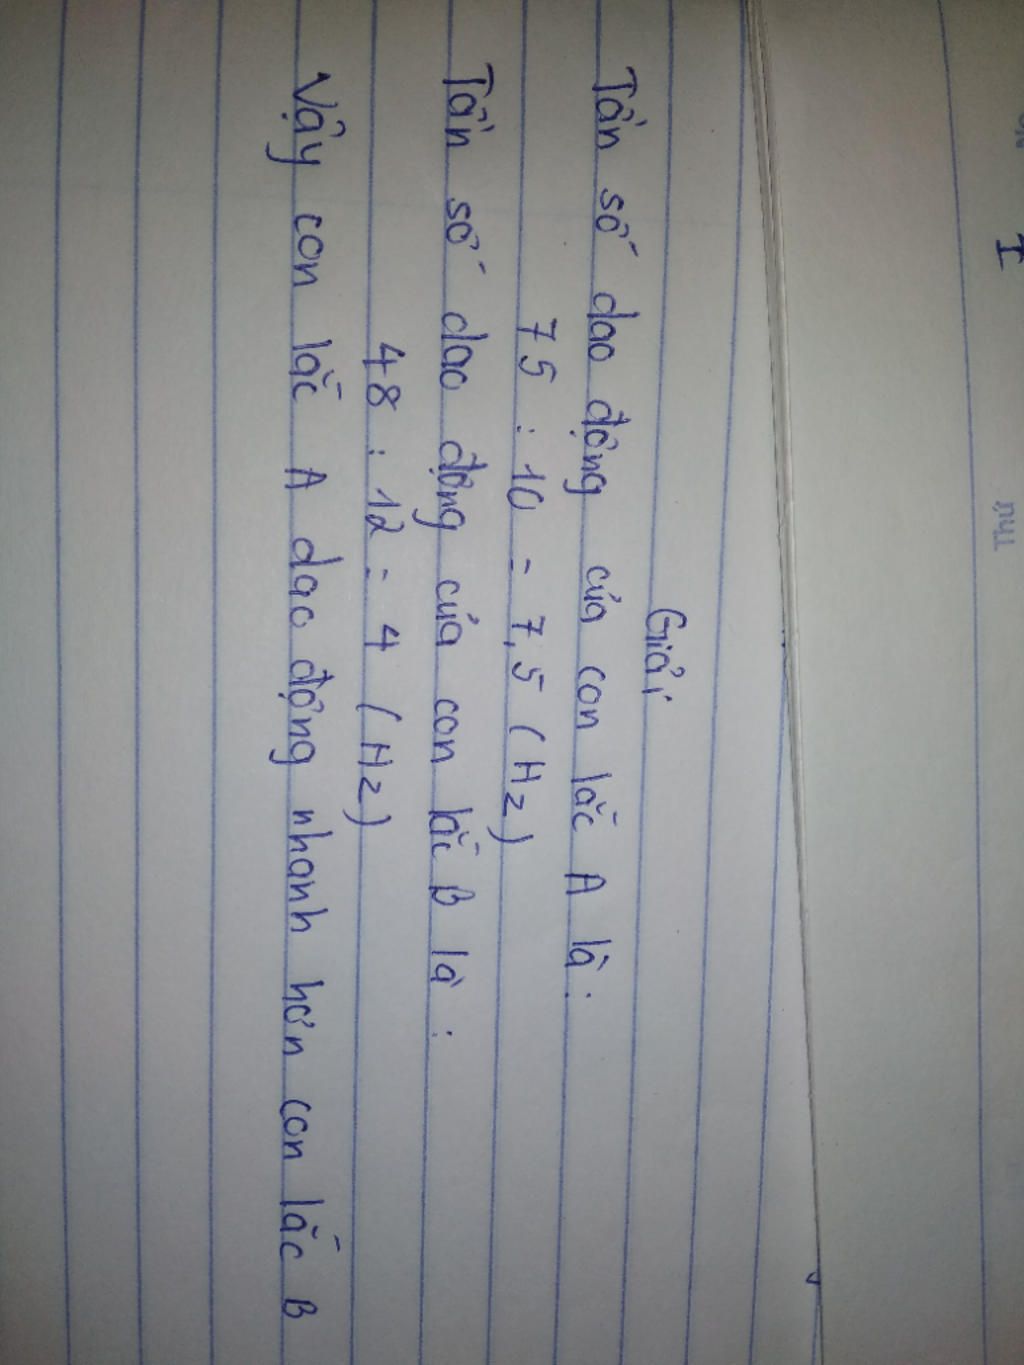 Giải
Tần số dao động của con lắc A là:
75 : 10 = 7,5 (Hz)
Tần số dao động của con lắc B là:
48 : 12 = 4 (Hz)
Vậy con lắc A dao động nhanh hơn con lắc B